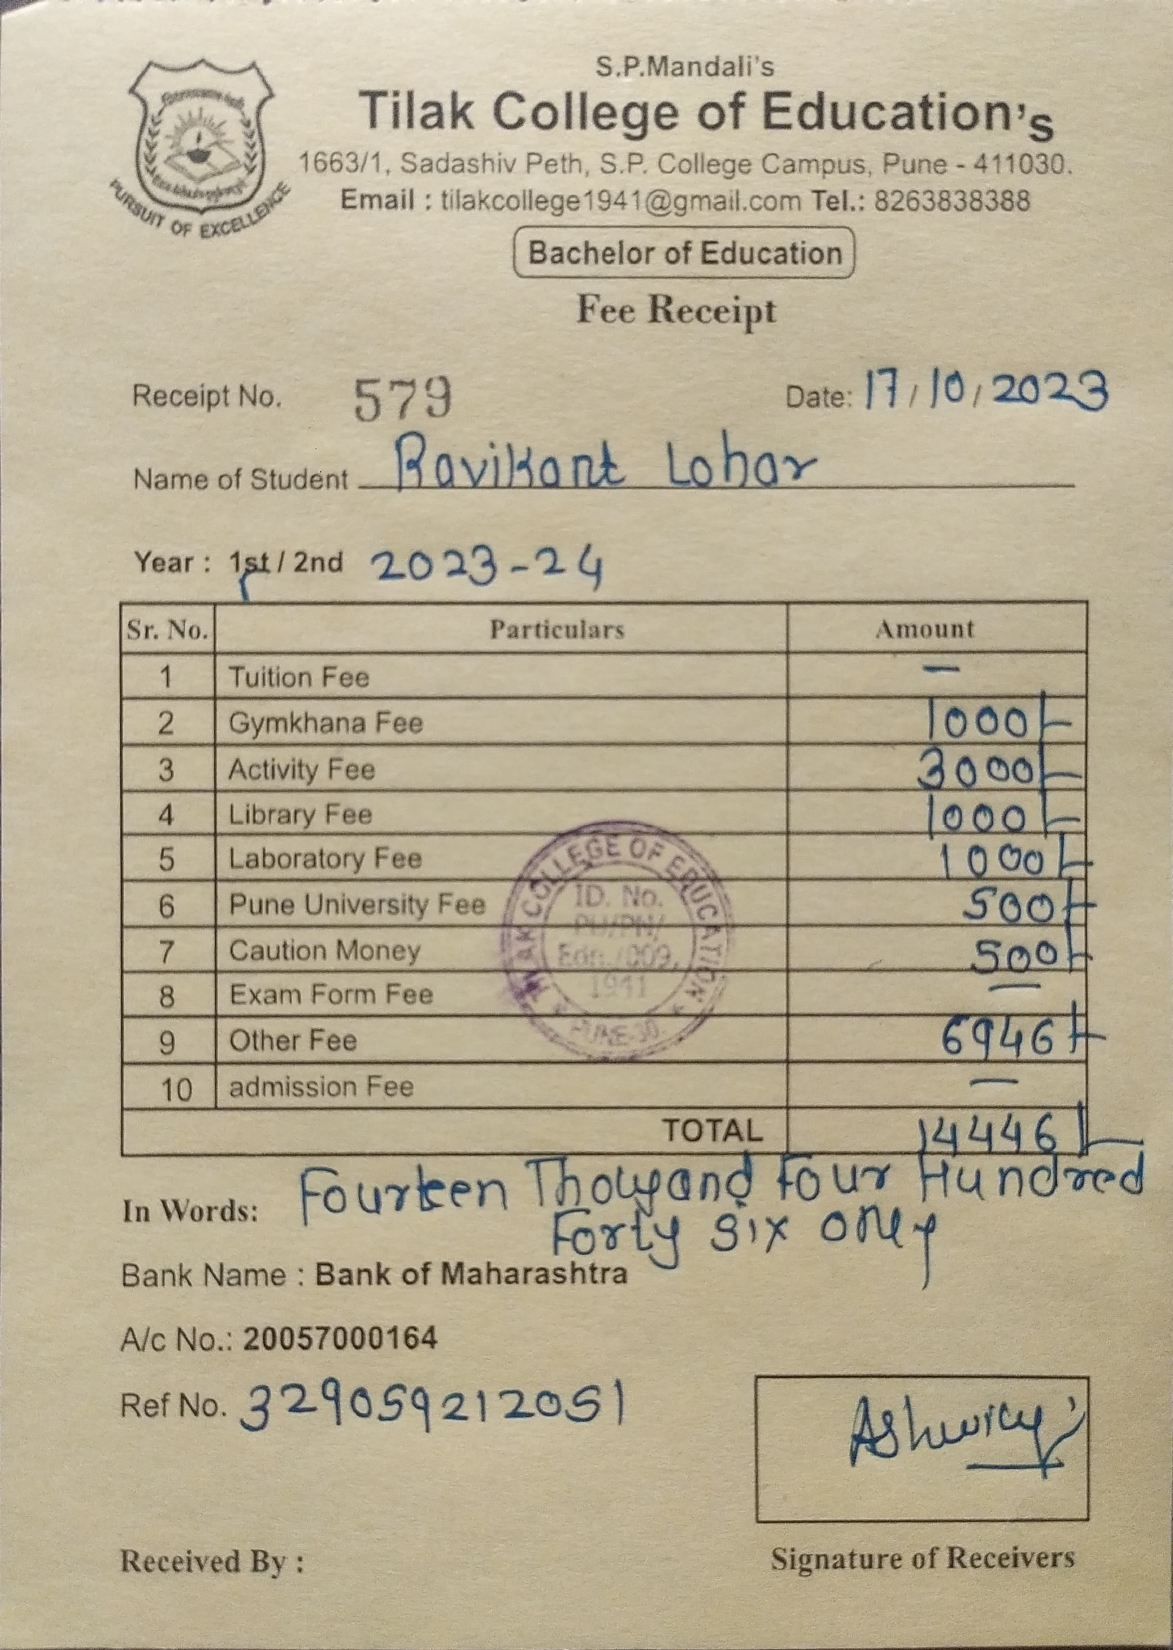 S.P.Mandali's
Tilak College of Education's
1663/1, Sadashiv Peth, S.P. College Campus, Pune - 411030.
Email : tilakcollege1941@gmail.com Tel.: 8263838388
PURSUIT OF EXCELLENCE
Bachelor of Education
Fee Receipt
Receipt No. 579 Date: 17/10/2023
Name of Student Ravikant Lohar
Year : 1st / 2nd 2023-24
Sr. No. Particulars Amount
1 Tuition Fee —
2 Gymkhana Fee 1000/-
3 Activity Fee 3000/-
4 Library Fee 1000/-
5 Laboratory Fee 1000/-
6 Pune University Fee 500/-
7 Caution Money 500/-
8 Exam Form Fee —
9 Other Fee 6946/-
10 admission Fee —
TOTAL 14446/-
TILAK COLLEGE OF EDUCATION
ID. No.
PU/PN/
Edn./009,
1941
* PUNE-30. *
In Words: Fourteen Thousand Four Hundred
Forty six only
Bank Name : Bank of Maharashtra
A/c No.: 20057000164
Ref No. 329059212051
Received By :
Signature of Receivers